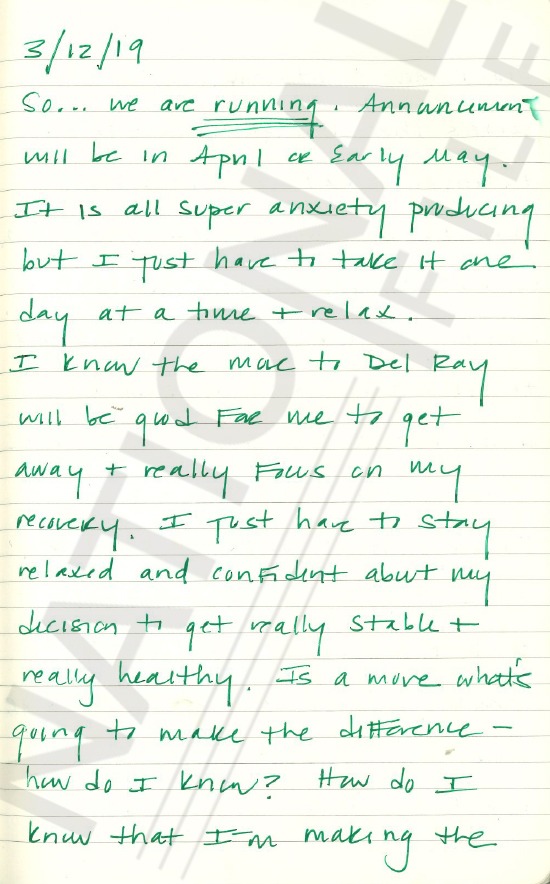 3/12/19
So... we are running. Announcement
will be in April or Early May.
It is all super anxiety producing
but I just have to take it one
day at a time + relax.
I know the move to Del Ray
will be good For me to get
away + really Focus on my
recovery. I Just have to stay
relaxed and confident about my
decision to get really stable +
really healthy. Is a move what's
going to make the difference –
how do I know? How do I
know that I'm making the
NATIONAL
FILE